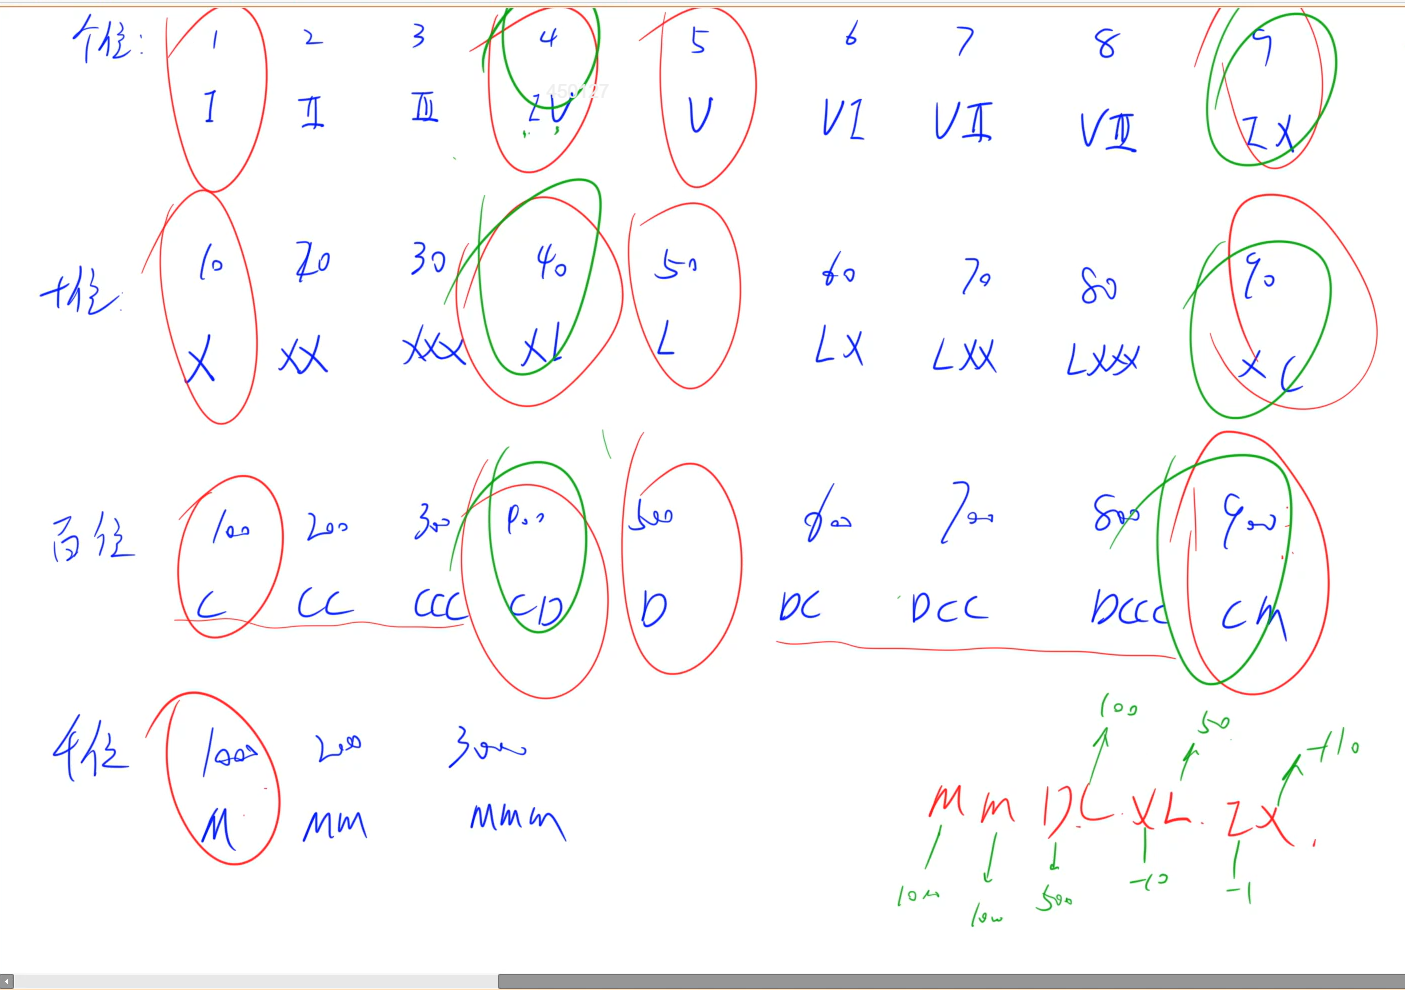 个位: 1 2 3 4 5 6 7 8 9
I II III IV V VI VII VIII IX
十位: 10 20 30 40 50 60 70 80 90
X XX XXX XL L LX LXX LXXX XC
百位 100 200 300 400 500 600 700 800 900
C CC CCC CD D DC DCC DCCC CM
千位 1000 2000 3000
M MM MMM
100 50 +10
M M D C X L I X
1000 1000 500 -10 -1